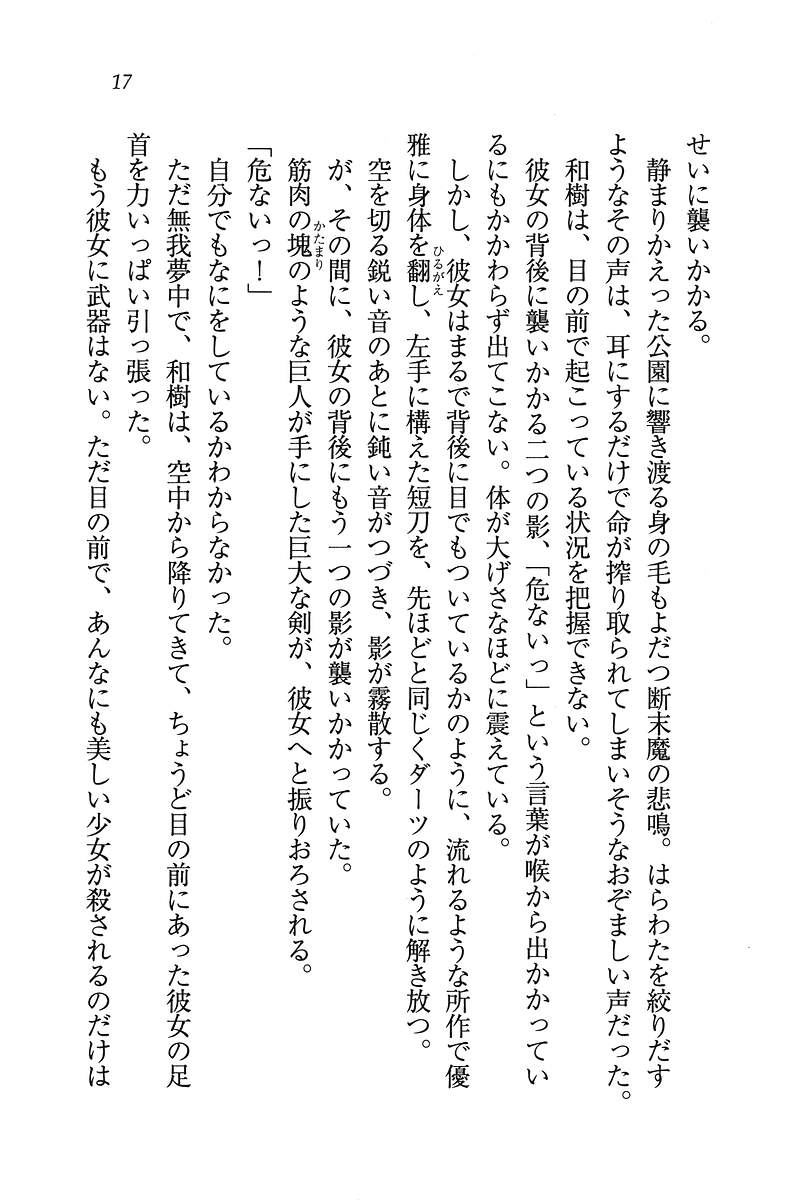 17
せいに襲いかかる。
静まりかえった公園に響き渡る身の毛もよだつ断末魔の悲鳴。はらわたを絞りだす
ようなその声は、耳にするだけで命が搾り取られてしまいそうなおぞましい声だった。
和樹は、目の前で起こっている状況を把握できない。
彼女の背後に襲いかかる二つの影、「危ないっ」という言葉が喉から出かかってい
るにもかかわらず出てこない。体が大げさなほどに震えている。
しかし、彼女はまるで背後に目でもついているかのように、流れるような所作で優
雅に身体を翻し、左手に構えた短刀を、先ほどと同じくダーツのように解き放つ。
空を切る鋭い音のあとに鈍い音がつづき、影が霧散する。
が、その間に、彼女の背後にもう一つの影が襲いかかっていた。
筋肉の塊のような巨人が手にした巨大な剣が、彼女へと振りおろされる。
「危ないっ！」
自分でもなにをしているかわからなかった。
ただ無我夢中で、和樹は、空中から降りてきて、ちょうど目の前にあった彼女の足
首を力いっぱい引っ張った。
もう彼女に武器はない。ただ目の前で、あんなにも美しい少女が殺されるのだけは